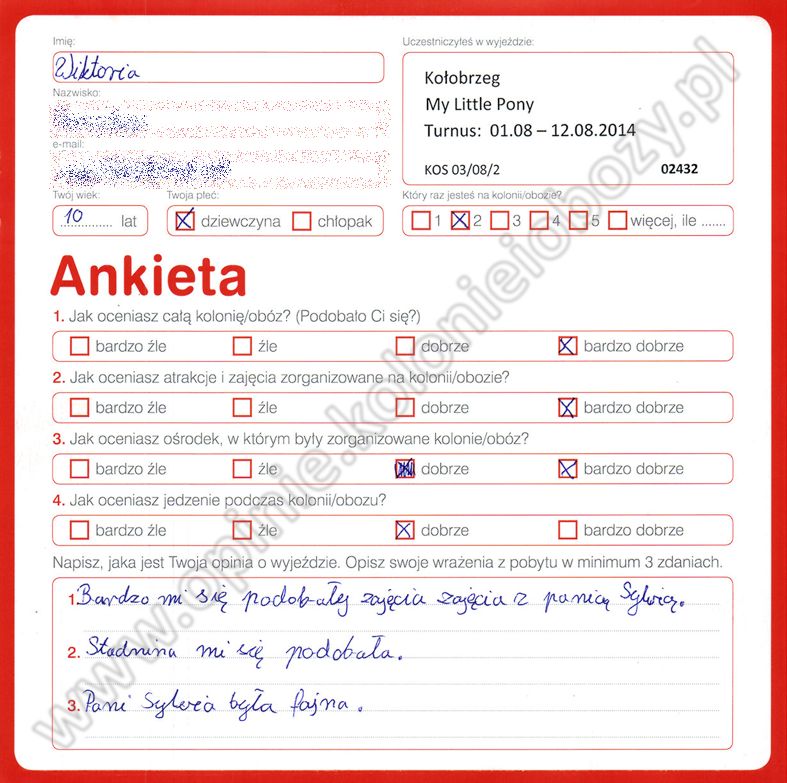 Imię:
Wiktoria
Nazwisko:
e-mail:
Twój wiek:
10 lat
Twoja płeć:
dziewczyna chłopak
Uczestniczyłeś w wyjeździe:
Kołobrzeg
My Little Pony
Turnus: 01.08 – 12.08.2014
KOS 03/08/2 02432
Który raz jesteś na kolonii/obozie?
1 2 3 4 5 więcej, ile .......
Ankieta
1. Jak oceniasz całą kolonię/obóz? (Podobało Ci się?)
bardzo źle źle dobrze bardzo dobrze
2. Jak oceniasz atrakcje i zajęcia zorganizowane na kolonii/obozie?
bardzo źle źle dobrze bardzo dobrze
3. Jak oceniasz ośrodek, w którym były zorganizowane kolonie/obóz?
bardzo źle źle dobrze bardzo dobrze
4. Jak oceniasz jedzenie podczas kolonii/obozu?
bardzo źle źle dobrze bardzo dobrze
Napisz, jaka jest Twoja opinia o wyjeździe. Opisz swoje wrażenia z pobytu w minimum 3 zdaniach.
1. Bardzo mi się podobałej zajęcia zajęcia z panią Sylwią.
2. Stadnina mi się podobała.
3. Pani Sylwia była fajna.
www.opinie.kolonieiobozy.pl